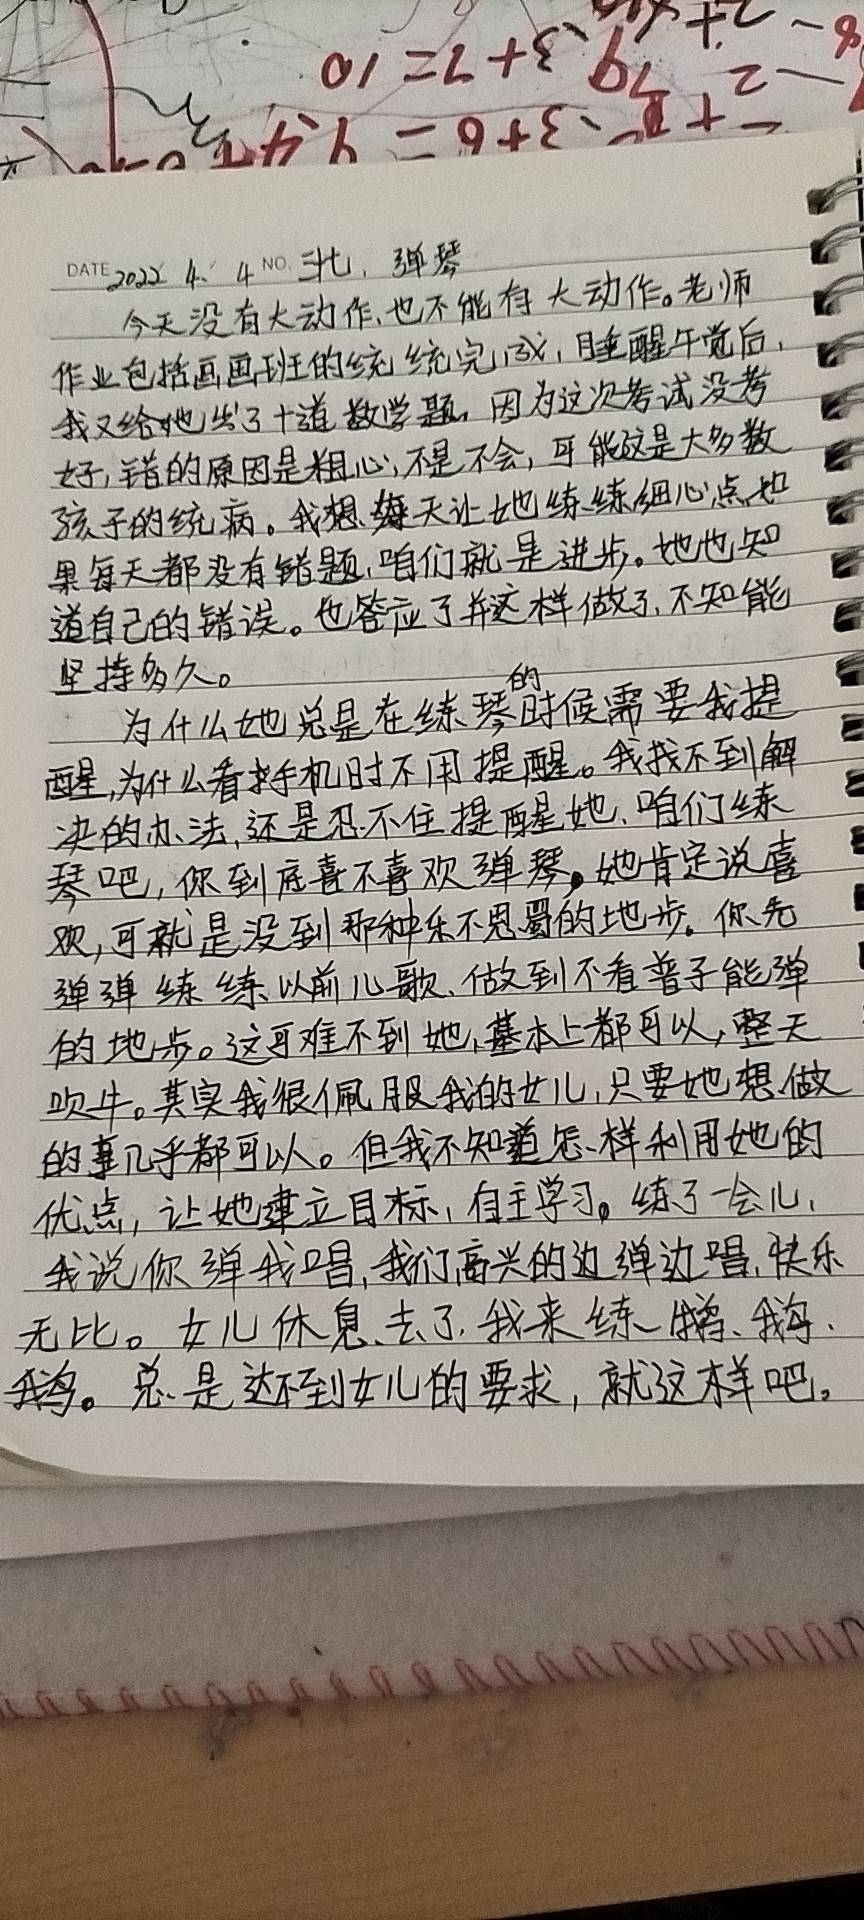 DATE 2022 4. 4 NO. 三七, 弹琴
今天没有大动作、也不能有大动作。老师
作业包括画画班的统统完成，睡醒午觉后，
我又给她出了十道数学题。因为这次考试没考
好，错的原因是粗心，不是不会，可能这是大多数
孩子的统病。我想每天让她练练细心点如
果每天都没有错题，咱们就是进步。她也知
道自己的错误。也答应了并这样做了、不知能
坚持多久。
为什么她总是在练琴的时候需要我提
醒，为什么看手机时不用提醒。我找不到解
决的办法，还是忍不住提醒她、咱们练
琴吧，你到底喜不喜欢弹琴，她肯定说喜
欢，可就是没到那种乐不思蜀的地步。你先
弹弹练练以前儿歌、做到不看普子能弹
的地步。这可难不到她，基本上都可以，整天
吹牛。其实我很佩服我的女儿，只要她想做
的事几乎都可以。但我不知道怎样利用她的
优点，让她建立目标，自主学习。练了一会儿，
我说你弹我唱，我们高兴的边弹边唱，快乐
无比。女儿休息去了，我来练鹅、鹅、
鹅。总是达不到女儿的要求，就这样吧。